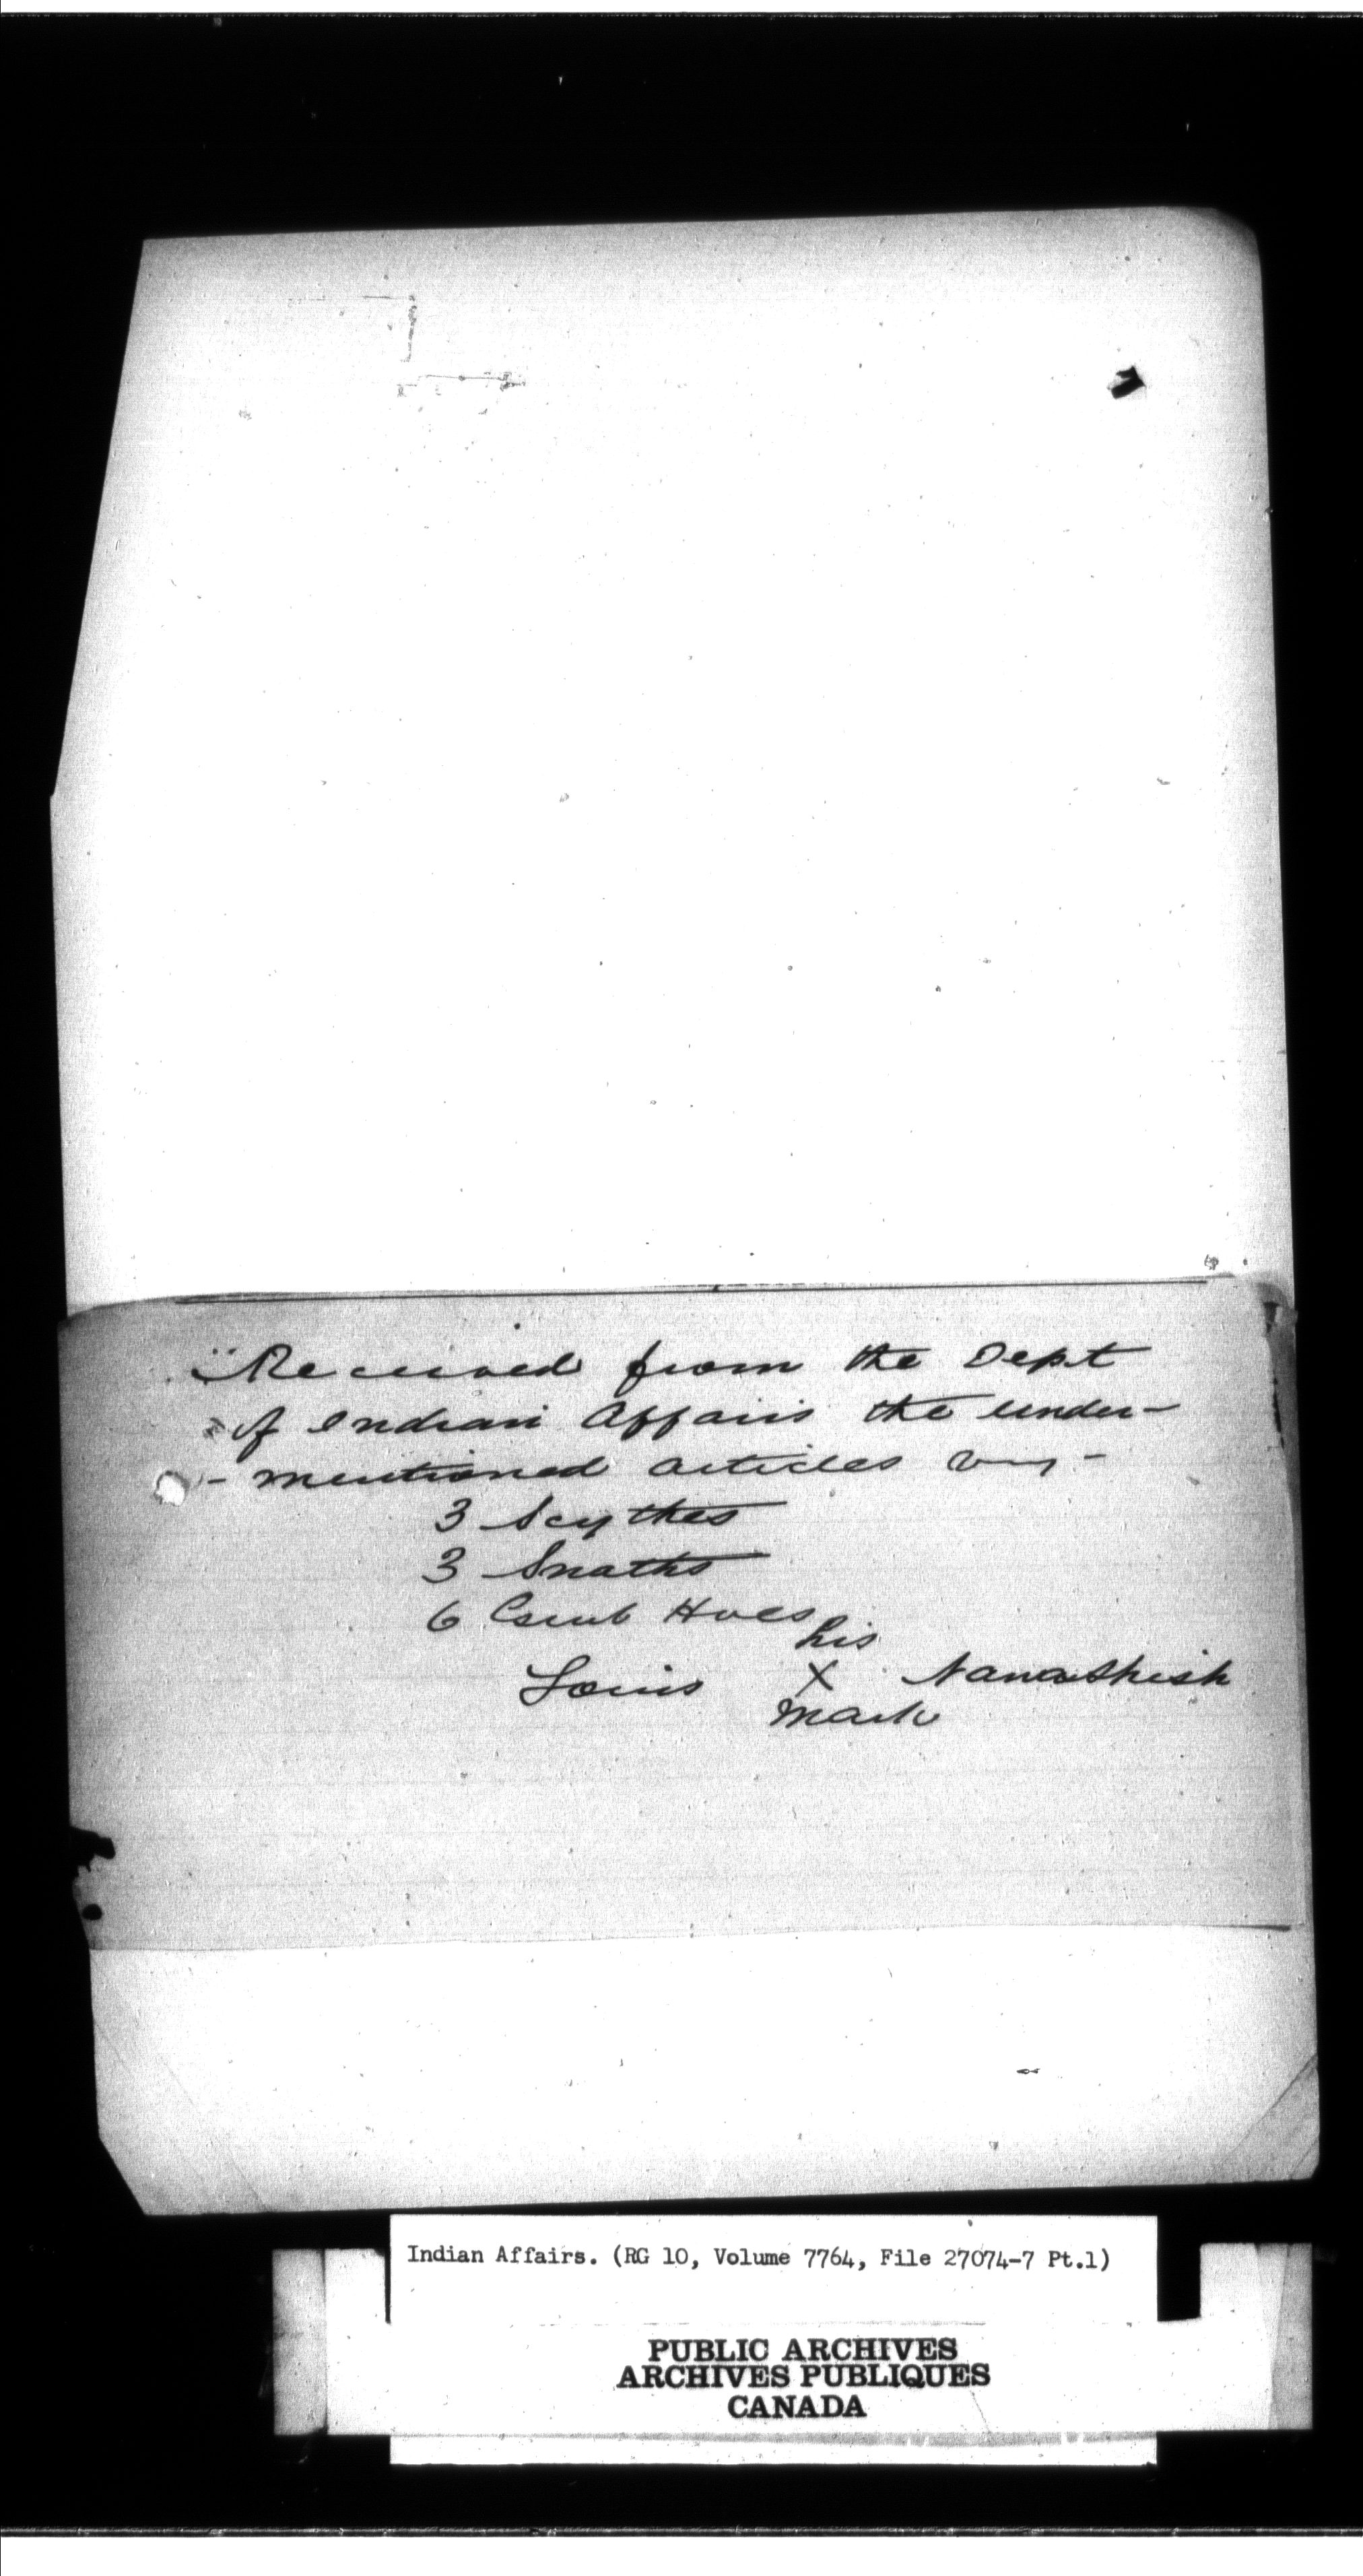 Received from the Dept
of Indian Affairs the under-
- mentioned articles viz -
3 Scythes
3 Snaths
6 Hoes
his
Louis X
mark
Indian Affairs. (RG 10, Volume 7764, File 27074-7 Pt.1)
PUBLIC ARCHIVES
ARCHIVES PUBLIQUES
CANADA